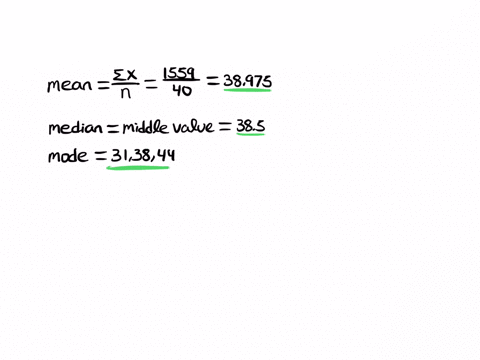 mean = Σx/n = 1559/40 = 38.975
median = middle value = 38.5
mode = 31,38,44